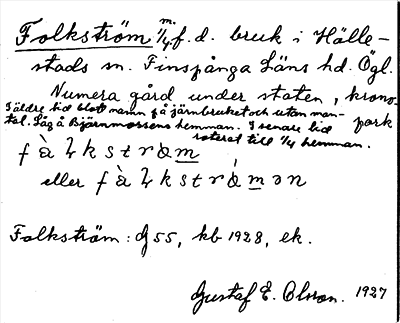 Folkström m. 1/4, f. d. bruk i Hälle-
stads sn. Finspånga Läns hd. Ögl.
Numera gård under staten, krono-
park
I äldre tid blott namn på järnbruket och utan man-
tal. Låg å Björnmossens hemman. I senare tid
roterat till 1/4 hemman.
fàlkstrǿm
eller fàlkstrǿmən
Folkström: dj 55, kb 1928, ek.
Gustaf E. Olsson. 1927